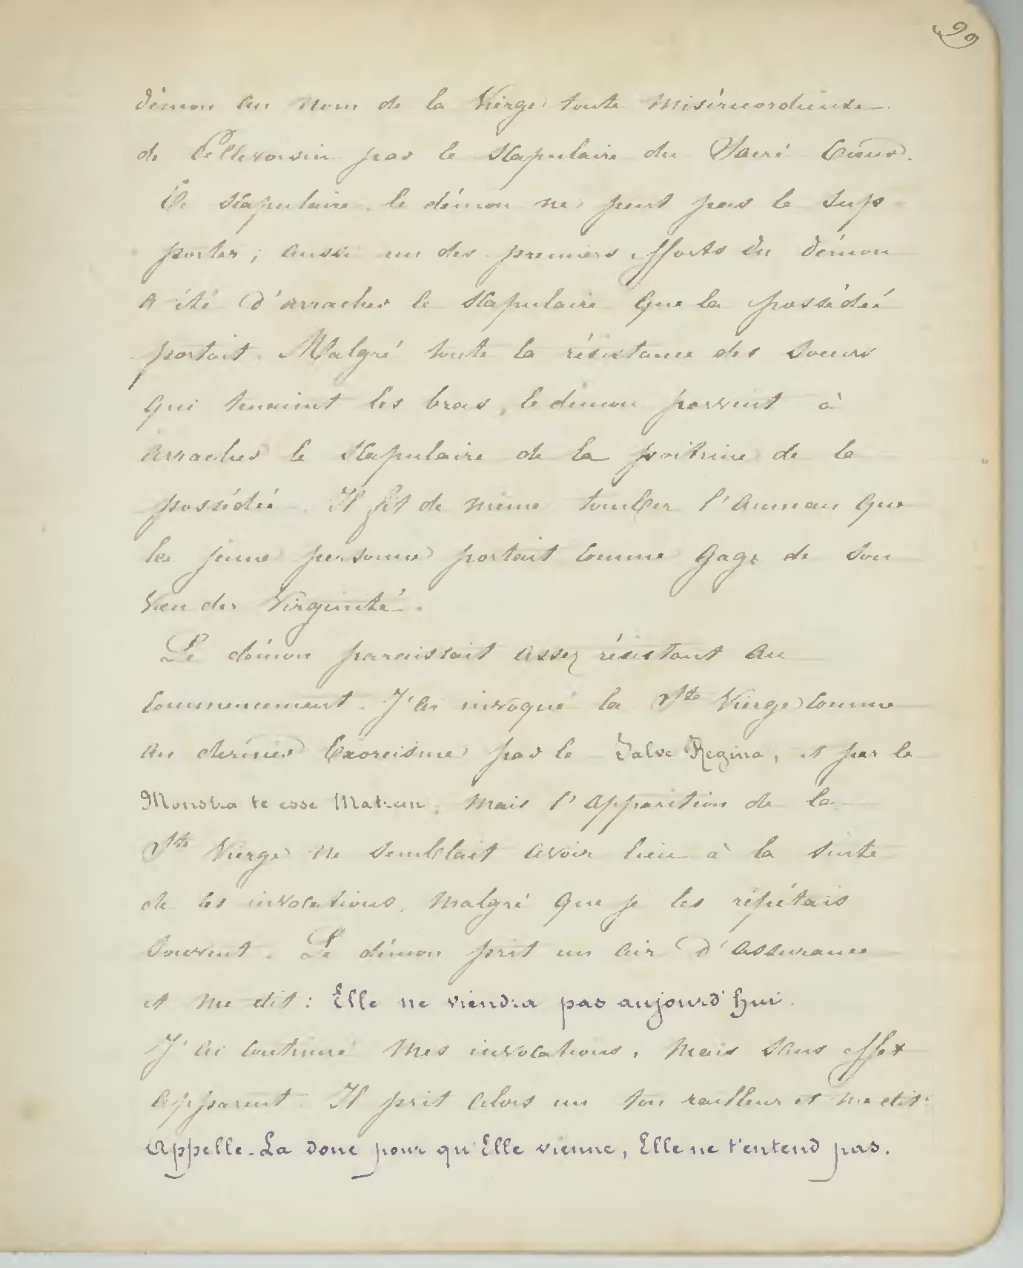 29
démon au nom de la Vierge toute Miséricordieuse
de Pellevoisin par le Scapulaire du Sacré Cœur.
Ce Scapulaire, le démon ne peut pas le sup
porter ; aussi un des premiers efforts du démon
a été d'arracher le Scapulaire que la possédée
portait. Malgré toute la résistance des Sœurs
qui tenaient les bras, le démon parvint à
arracher le Scapulaire de la poitrine de la
possédée. Il fit de même tomber l'anneau que
la jeune personne portait comme gage de son
vœu de Virginité.
Le démon paraissait assez résistant au
commencement. J'ai invoqué la Ste Vierge comme
au dernier Exorcisme par le Salve Regina, et par le
Monstra te esse Matrem, mais l'apparition de la
Ste Vierge ne semblait avoir lieu à la suite
de ces invocations, malgré que je les répétais
souvent. Le démon prit un air d'assurance
et me dit : Elle ne viendra pas aujourd'hui.
J'ai continué mes invocations, mais sans effet
apparent. Il prit alors un ton railleur et me dit :
Appelle-La donc pour qu'Elle vienne, Elle ne t'entend pas.